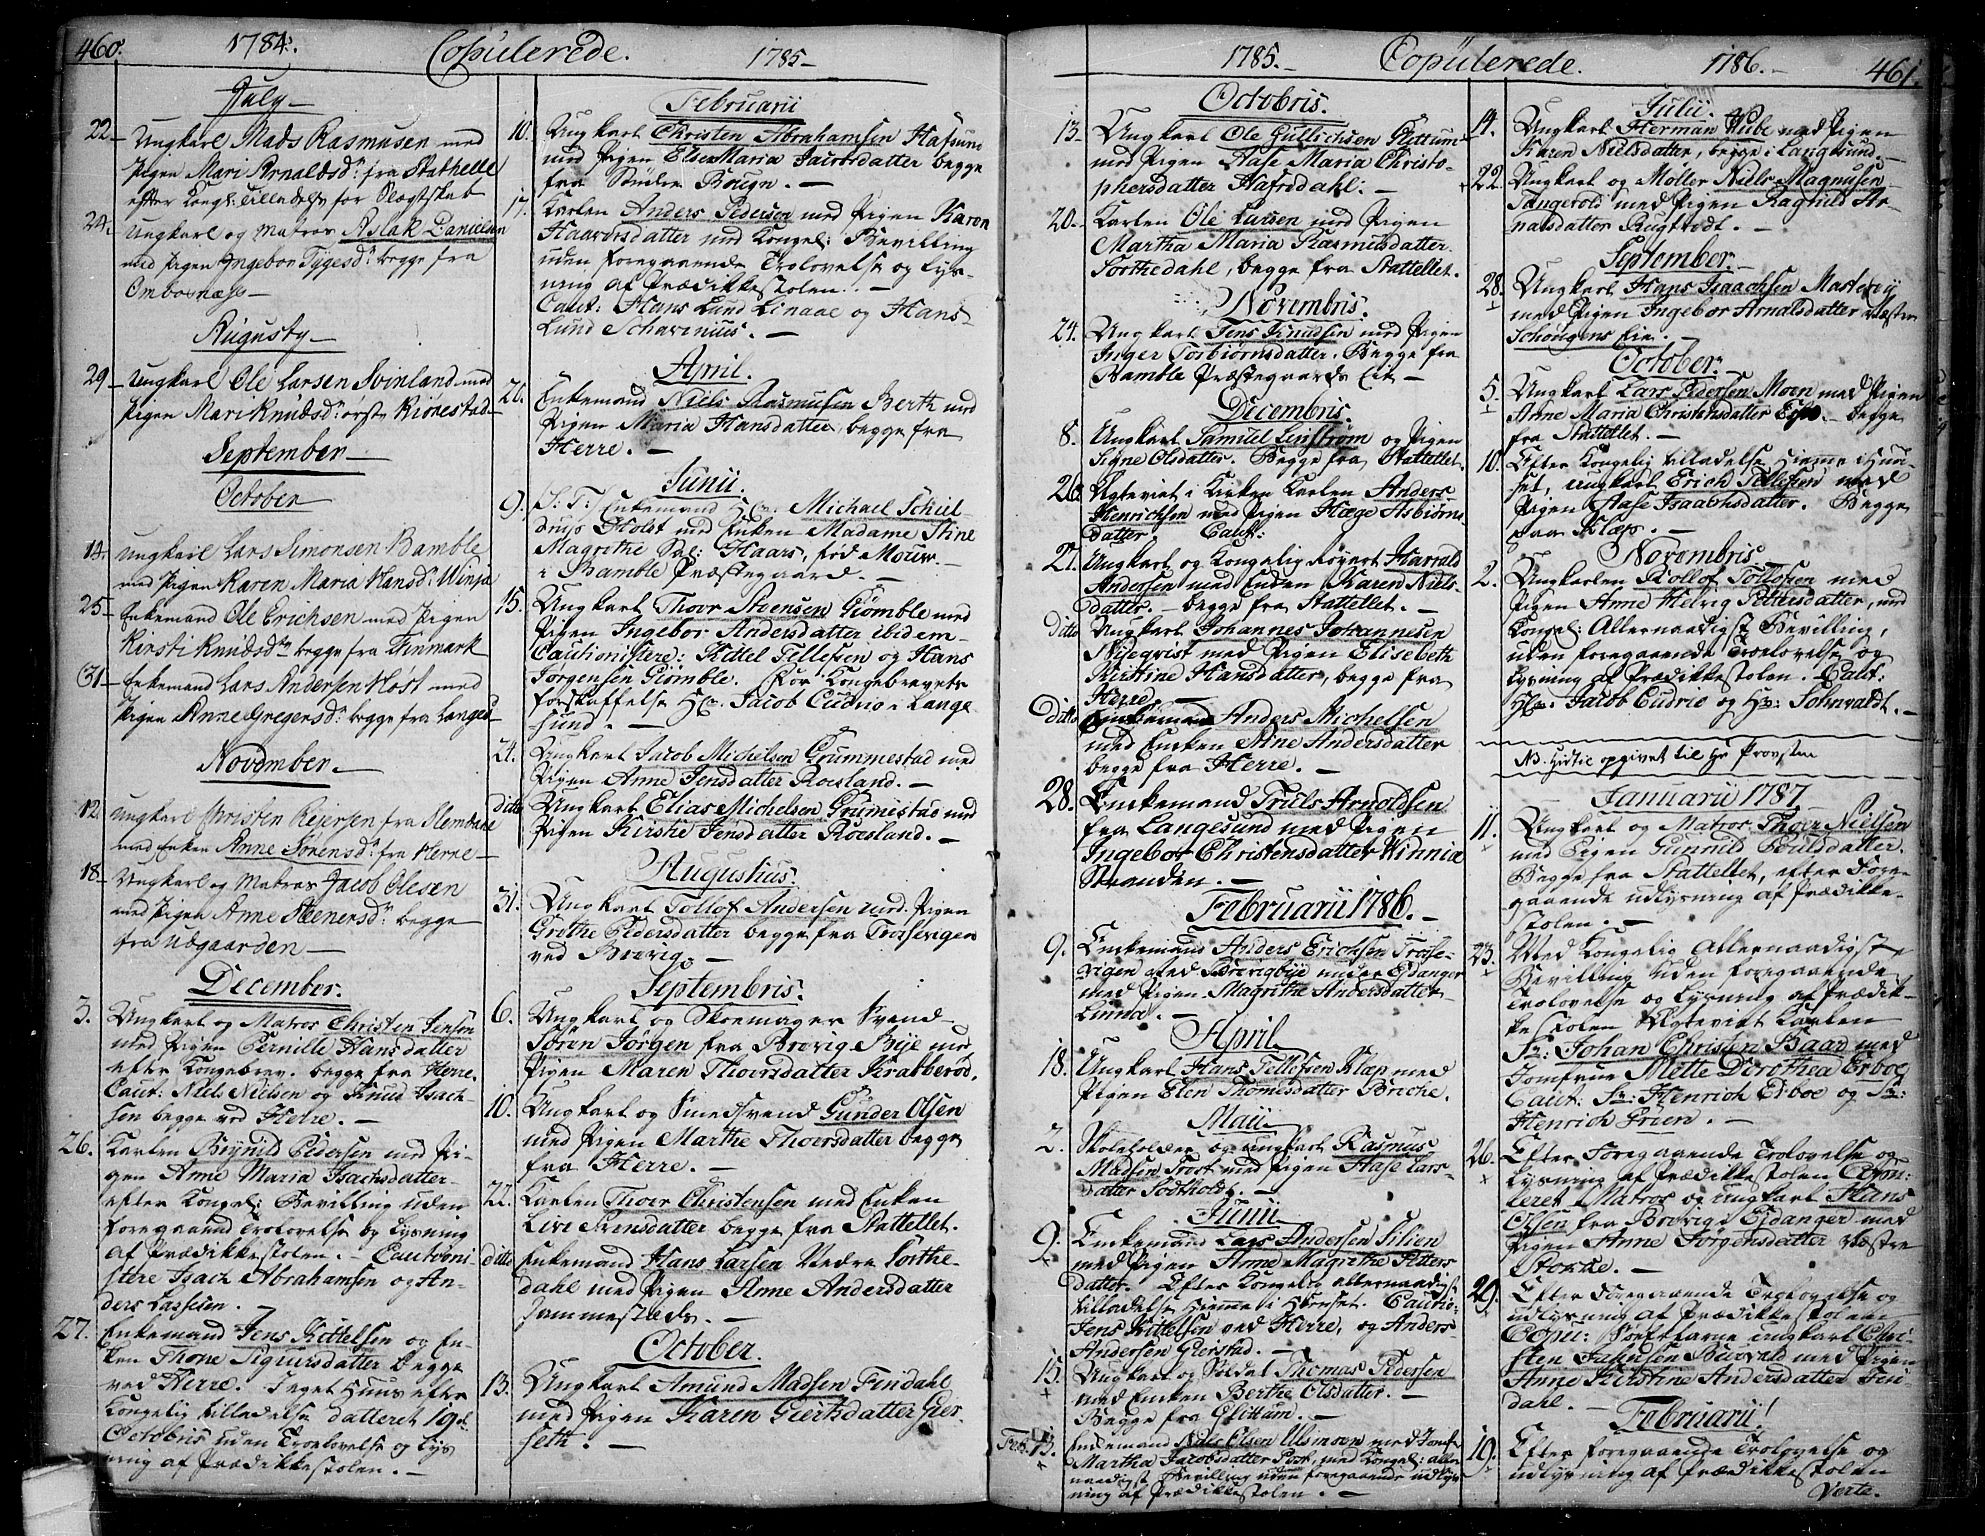 460. 1784. Copulerede. 1785
July
22. Ungkarl Mads Rasmusen med
Pigen Mari Arnaldsd. fra Stathelle
efter Kongl: Tilladelse for Slegtskab
24. Ungkarl og Matros Aslak Danielsen
med Pigen Ingebor Tygesd. begge fra
Ombosnæss
Augusty
29 Ungkarl Ole Larsen Svinland med
Pigen Mari Knudsd. Kiønestad
September
October
14. Ungkarl Lars Simonsen Bamble
med Pigen Karen Maria Hansd. Winje
25 Enkemand Ole Erichsen med Pigen
Kirsti Knudsd. begge fra Finmark
31 Enkemand Lars Andersen Host med
Pigen Anne Gregersd. begge fra Langes
November
12. Ungkarl Christen Rejersen fra
med Enken Anne Sørensd. fra Herre
18 Ungkarl og Matros Jacob Olesen
med Pigen Anne Steenersd. begge
fra Udgaarden
December.
3. Ungkarl og Matros Christen Jenson
med Pigen Pernille Hansdatter
efter Kongebrev. begge fra Herre.
Caut: Niels Nielsen og Knud Isach-
sen begge ved Herre.
26. Karlen Brynild Pedersen med Pi-
gen Anne Maria Isachsdatter
efter Kongel: Bevilling uden
foregaaend Trolovelse og Lysning
af Prædikkestolen. Cautioni
stere Isach Abrahamsen og An-
ders Lassesen.
27. Enkemand Jens Kittelsen og En-
ken Thone Sigursdatter begge
ved Herre. I eget Huus efter
Kongelig tilladelse datteret 19de
Octobris uden Troelovelse og Lys
ning af Prædikkestolen.
Februarii
10. Ungkarl Christen Abrahamsen Hafsund
med Pigen Else Maria Jacobsdatter begge
fra Søndre Bough.
17. Karlen Anders Pederson med Pigen Karen
Haavorsdatter med Kongel: Bevilling
uden foregaaende Trolovelse og Lys-
ning af Prædikkestolen.
Caut: Hans Lund Linaae og Hans
Lund Schavenius.
April.
20. Enkemand Niels Rasmusen Berth med
Pigen Maria Hansdatter, begge fra
Herre.
Junii.
9. (S: T:) Enkemand Hr. Michael Schiel-
drup Holst med Enken Madame Stine
Magrethe Sal: Haars, fød Mouw.
i Bamble Præstegaard.
15. Ungkarl Thor Svensen Giømble med
Pigen Ingebor Andersdatter ibidem
Cautionistere: Kittel Tellefsen og Hans
Jørgensen Giømble. For Kongebrevets
forskaffelse Hr. Jacob Cudrio i Lange
sund.
24. Ungkarl Jacob Michelsen Grummestad med
Pigen Anne Jensdatter Roesland.
ditto Ungkarl Elias Michelsen Grumestad med
Pigen Kirstie Jensdatter Roesland.
Augustus.
31. Ungkarl Tollof Andersen med Pigen
Grethe Pedersdatter begge fra Trosevigen
ved Brevig.
Septembris.
6. Ungkarl og Skoemager Svend
Søren Jørgen fra Brevig Bye med
Pigen Maren Thoersdatter Krabberød.
10. Ungkarl og Smedsvend Gunder Olsen
med Pigen Marthe Thoersdatter begge
fra Herre.
22. Karlen Thoer Christensen med Enken
Live Svensdatter begge fra Stattellet.
ditto Enkemand Hans Larsen Nedre Torthe-
dahl med Pigen Anne Andersdatter
sammestæds.
October.
13. Ungkarl Amund Madsen Findahl
med Pigen Karen Giertsdatter Gier-
seth.
1785. Copulerede. 1786. 461.
Octobris.
13. Ungkarl Ole Gullichsen Flittum
med Pigen Aase Maria Christo-
phersdatter Hafsdahl.
20. Karlen Ole Larsen med Pigen
Martha Maria Rasmusdatter
Torthedahl, begge fra Stattellet.
Novembris.
24. Ungkarl Jens Knudsen med Pigen
Inger Torbiørnsdatter. Begge fra
Bamble Præstegaards Eie
Decembris.
8. Ungkarl Samuel Linstrøm og Pigen
Signe Olsdatter. Begge fra Stattellet.
26. Ægteviet i Kirken Karlen Anders
Henrichsen med Pigen Hæge Asbiørns
datter. Caut:
27. Ungkarl og Kongelig Rojert Harrald
Andersen med Enken Karen Niels-
datter. begge fra Stattellet.
ditto Ungkarl Johannes Johannesen
Nideqvist med Pigen Elisebeth
Kirstine Hansdatter, begge fra
Herre
ditto Enkemand Anders Michelsen
med Enken Stine Andersdatter
begge fra Herre.
28. Enckemand Truls Arnoldsen
fra Langesund med Pigen
Ingebor Christensdatter Winnie
Stranden.
Februarii 1786.
9. Enckemand Anders Erichsen Trose-
vigen ved Brevigbye under Edanger
med Pigen Magrithe Andersdatter
Linnæ.
April
18. Ungkarl Hans Tellefsen Klæp med
Pigen Elen Thomesdatter Briche.
Maii
2. Skoleholder og ungkarl Rasmus
Madsen Trost med Pigen Aase Lars-
datter Todthold.
Junii
9. Enckemand Lars Andersen Silien
med Pigen Anne Magrethe Petters
datter. Efter Kongelig allernaadigst
tilladelse Hiemme i Huuset. Cautio:
Jens Kittelsen ved Herre, og Anders
Andersen Gierstad.
15. Ungkarl og Soldat Thomas Pedersen
med Enken Berthe Olsdatter.
Begge fra Flittum.
Feb: 13. Enkemand Niels Olsen Ulsmoen med Jomfr
Martha Jacobsdatter med Kongel: aller
naadigst Bevilling uden foregaaende udlys
ning af Prædikkestolen.
Julii
14. Ungkarl Herman Wube med Pigen
Karen Nielsdatter, begge i Langesund.
22. Ungkarl og Møller Niels Magnusen
Tangerold med Pigen Ragnild Ar-
nalsdatter Rugtvedt.
September.
28. Ungkarl Hans Isaachsen Masterej
med Pigen Ingebor Arnalsdatter Vestre
Schougens Eie.
October.
5. Ungkarl Lars Pedersen Moen med Pigen
Anne Maria Christensdatter begge
fra Stattellet.
10. Efter Kongelig tilladelse Hieme i Huu-
set, ungkarl Erich Tellefsen med
Pigen Aase Isaachsdatter. Begge
paa Klæp.
Novembris
2. Ungkarlen Rollof Tollofsen med
Pigen Anne Helvig Pettersdatter, med
Kongel: Allernaadigst Bevilling,
uden foregaaende Troelovelse og
Lysning af Prædikkestolen. Caut:
Hr: Jacob Cudrio og Hr: Sohnvaldt.
NB. Hidtil opgivet til Hr Provsten
Januarii 1787
11. Ungkarl og Matros Thoer Nielsen
med Pigen Gunnild Poulsdatter.
Begge fra Stattellet, efter Fore-
gaaende udlysning af Prædikke-
stolen.
23. Med Kongelig Allernaadigste
Bevilling uden foregaaende
Trolovelse og Lysning af Prædik-
kestolen Ægteviet Karlen
Sr: Johan Christen Baar med
Jomfrue Mette Dorothea Erboe
Caut: Sr: Henrich Erboe og Sr:
Henrich Frien.
26. Efter Foregaaende Trolovelse og
Lysning af Prædikkestolen Copu-
leret Matros og ungkarl Hans
Olsen fra Brevig i Eidanger med
Pigen Anne Jørgensdatter Vestre
Stokke.
29. Efter foregaaende Trolovelse og
udlysning af Prædikkestolen
Copu: ungkarl Chri-
sten Falchsen med Pigen
Anne Kirstine Andersdatter Fin-
dahl.
Februarii!
19. Efter foregaaende Trolovelse og
udlysning af Prædikkestolen
Verte.